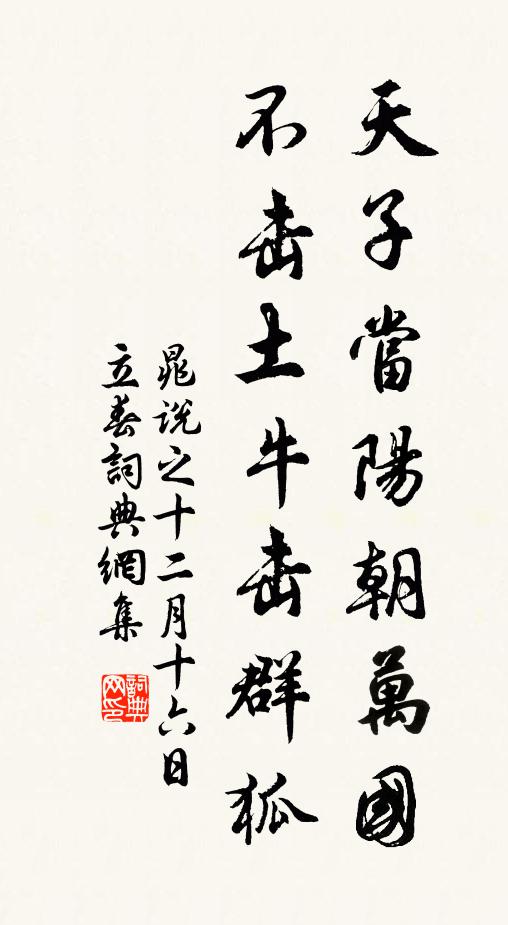 天子當陽朝萬國
不击土牛击群狐
晁說之十二月十六日
立春詞典網集
詞典
网印